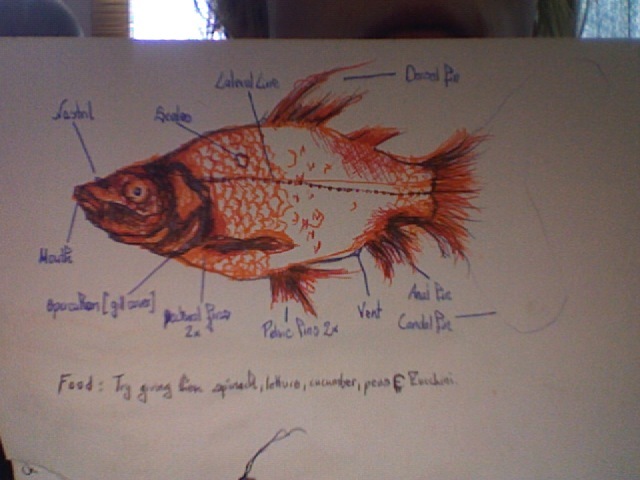 Lateral Line
Dorsal Fin
Nostril
Scales
Mouth
Operculum [gill cover]
Pectoral fins
2x
Pelvic Fins 2x
Vent
Anal Fin
Caudal Fin
Food: Try giving them spinach, lettuce, cucumber, peas & Zucchini.